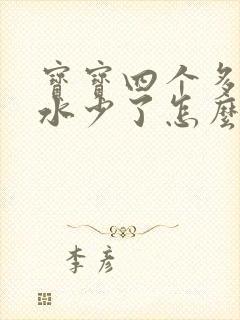 寶寶四个多
水少了怎麼
李彦